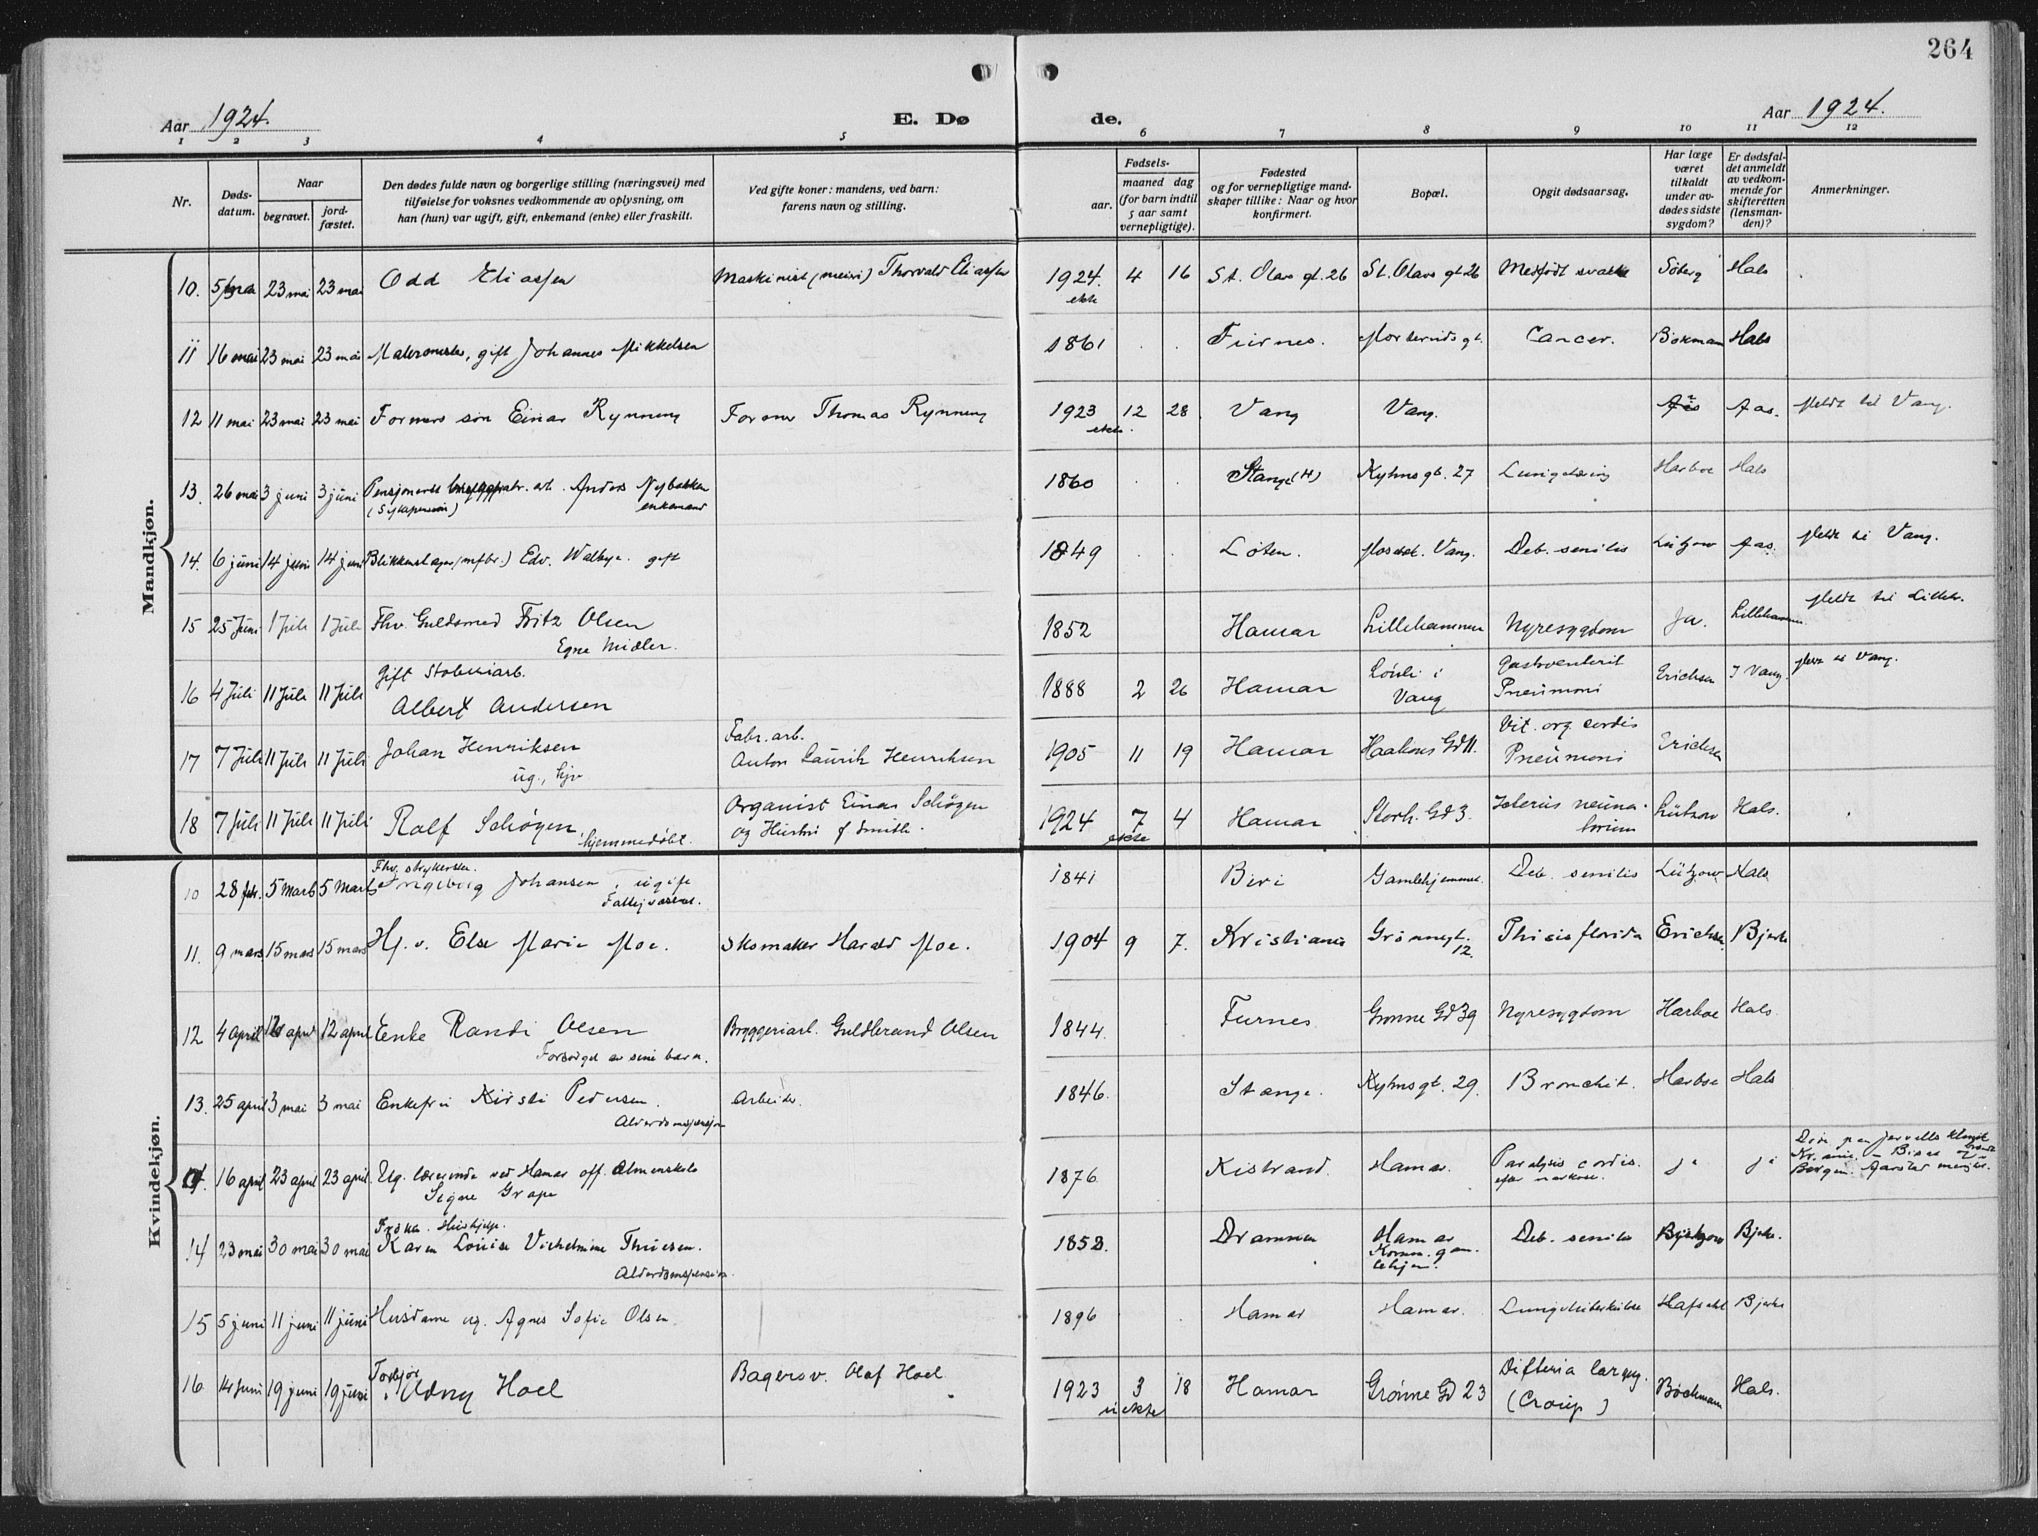 264
Aar 1924.
E. Dø de.
Aar 1924.
1 2 3 4 5 6 7 8 9 10 11 12
Nr.
Døds-
datum.
Naar
begravet.
jord-
fæstet.
Den dødes fulde navn og borgerlige stilling (næringsvei) med
tilføielse for voksnes vedkommende av oplysning, om
han (hun) var ugift, gift, enkemand (enke) eller fraskilt.
Ved gifte koner: mandens, ved barn:
farens navn og stilling.
Fødsels-
aar.
maaned dag
(for barn indtil
5 aar samt
vernepligtige).
Fødested
og for vernepligtige mand-
skaper tillike: Naar og hvor
konfirmert.
Bopæl.
Opgit dødsaarsag.
Har læge
været
tilkaldt
under av-
dødes sidste
sygdom?
Er dødsfal-
det anmeldt
av vedkom-
mende for
skifteretten
(lensman-
den)?
Anmerkninger.
Mandkjøn.
10. 5 mai 23 mai 23 mai Odd Eliassen Maskinist (meieri) Thorvald Eliassen 1924. 4 16 St. Olavs gt. 26 St. Olavs gt 26 Medfødt svakhet Söberg Hals
ekte
11 16 mai 23 mai 23 mai Malermester, gift Johannes Mikkelsen 1861 Furnes. Cancer. Bökman Hals
12 11 mai 23 mai 23 mai Formers søn Einar Rynning Former Thomas Rynning 1923 12 28 Vang Vang. Aas Aas. Meldt til Vang.
ekte.
13. 26 mai 3 juni 3 juni Pensjonert Anders Nybakken 1860 Stange (H) Kyhns gt. 27 Harboe Hals
enkemand
14. 6 juni 14 juni 14 juni Blikkenslager (mfbr.) Edv. Walbye. gift 1849 Löten. Vang. Deb. senilis Lützow Aas. Meldt til Vang.
15 25 Juni 1 Juli 1 Juli Fhv. Guldsmed Fritz Olsen 1852 Hamar Lillehammer Nyresygdom Ja. Lillehammer Meldt til Lilleh.
Egne Midler.
16 4 Juli 11 Juli 11 Juli Gift Stoberiarb. 1888 2 26 Hamar Vang Gastroenterit Erichsen I Vang. Meldt til Vang.
Albert Andersen Pneumoni
17 7 Juli 11 Juli 11 Juli Johan Henriksen Fabr. arb. 1905 11 19 Hamar Haakons Gd 11. Vit. org. cordis Erichsen
ug., hjv. Anton Laurik Henriksen Pneumoni
18 7 Juli 11 Juli 11 Juli Rolf Schøyen, Organist Einar Schøyen 1924 7 4 Hamar Storh. Gd 3. Icterus neona- Lützow Hals.
hjemmedøbt. og Hustru f. Smith. ekte torum
Kvindekjøn.
10 28 feb. 5 Marts 5 Marts Fhv. strykerske. 1841 Biri Gamlehjemmet. Deb. senilis Lützow Hals
Ingeborg Johansen, ugift
Fattigvæsenet.
11. 9 mars 15 mars 15 mars Hj. v. Else Marie Moe. Skomaker Harald Moe. 1904 9 7. Kristiania Grønnegt. 12. Phisis florida Erichsen Bjerke
12 4 april 12 april 12 april Enke Randi Olsen Bryggeriarb. Guldbrand Olsen 1844. Furnes Grønne Gd 39 Nyresygdom Harboe Hals.
Forsørget av sine barn.
13. 25 april 3 mai 3 mai Enkefru Kirsti Pedersen. Arbeider. 1846. Stange. Kyhns gt. 29. Bronchit. Harboe Hals
Alderdomspensjon
16 april 23 april 23 april Ug. lærerinde ved Hamar off. almenskole 1876 Kistrand. Hamar. Paralysis cordis. ja ja
Signe Grape efter narkose. Bergen. Aarstad menighet.
14 23 mai 30 mai 30 mai Frøken. Hushjelp. 1858. Drammen Hamar Deb. senilis Bjerke.
Karen Louise Vilhelmine Thuesen. Komm. gam-
Alderdomspension. lehjem.
15 5 juni 11 juni 11 juni Husdame ug. Agnes Sofie Olsen. 1896 Hamar Hamar. Lungetuberkulose Hafstad Bjerke
16 14 Juni 19 juni 19 juni Torbjør Bagersv. Olaf Hoel 1923 3 18 Hamar Grønne Gd 23 Difteria laryng. Böckmann Hals.
Udny Hoel uekte (Croup)